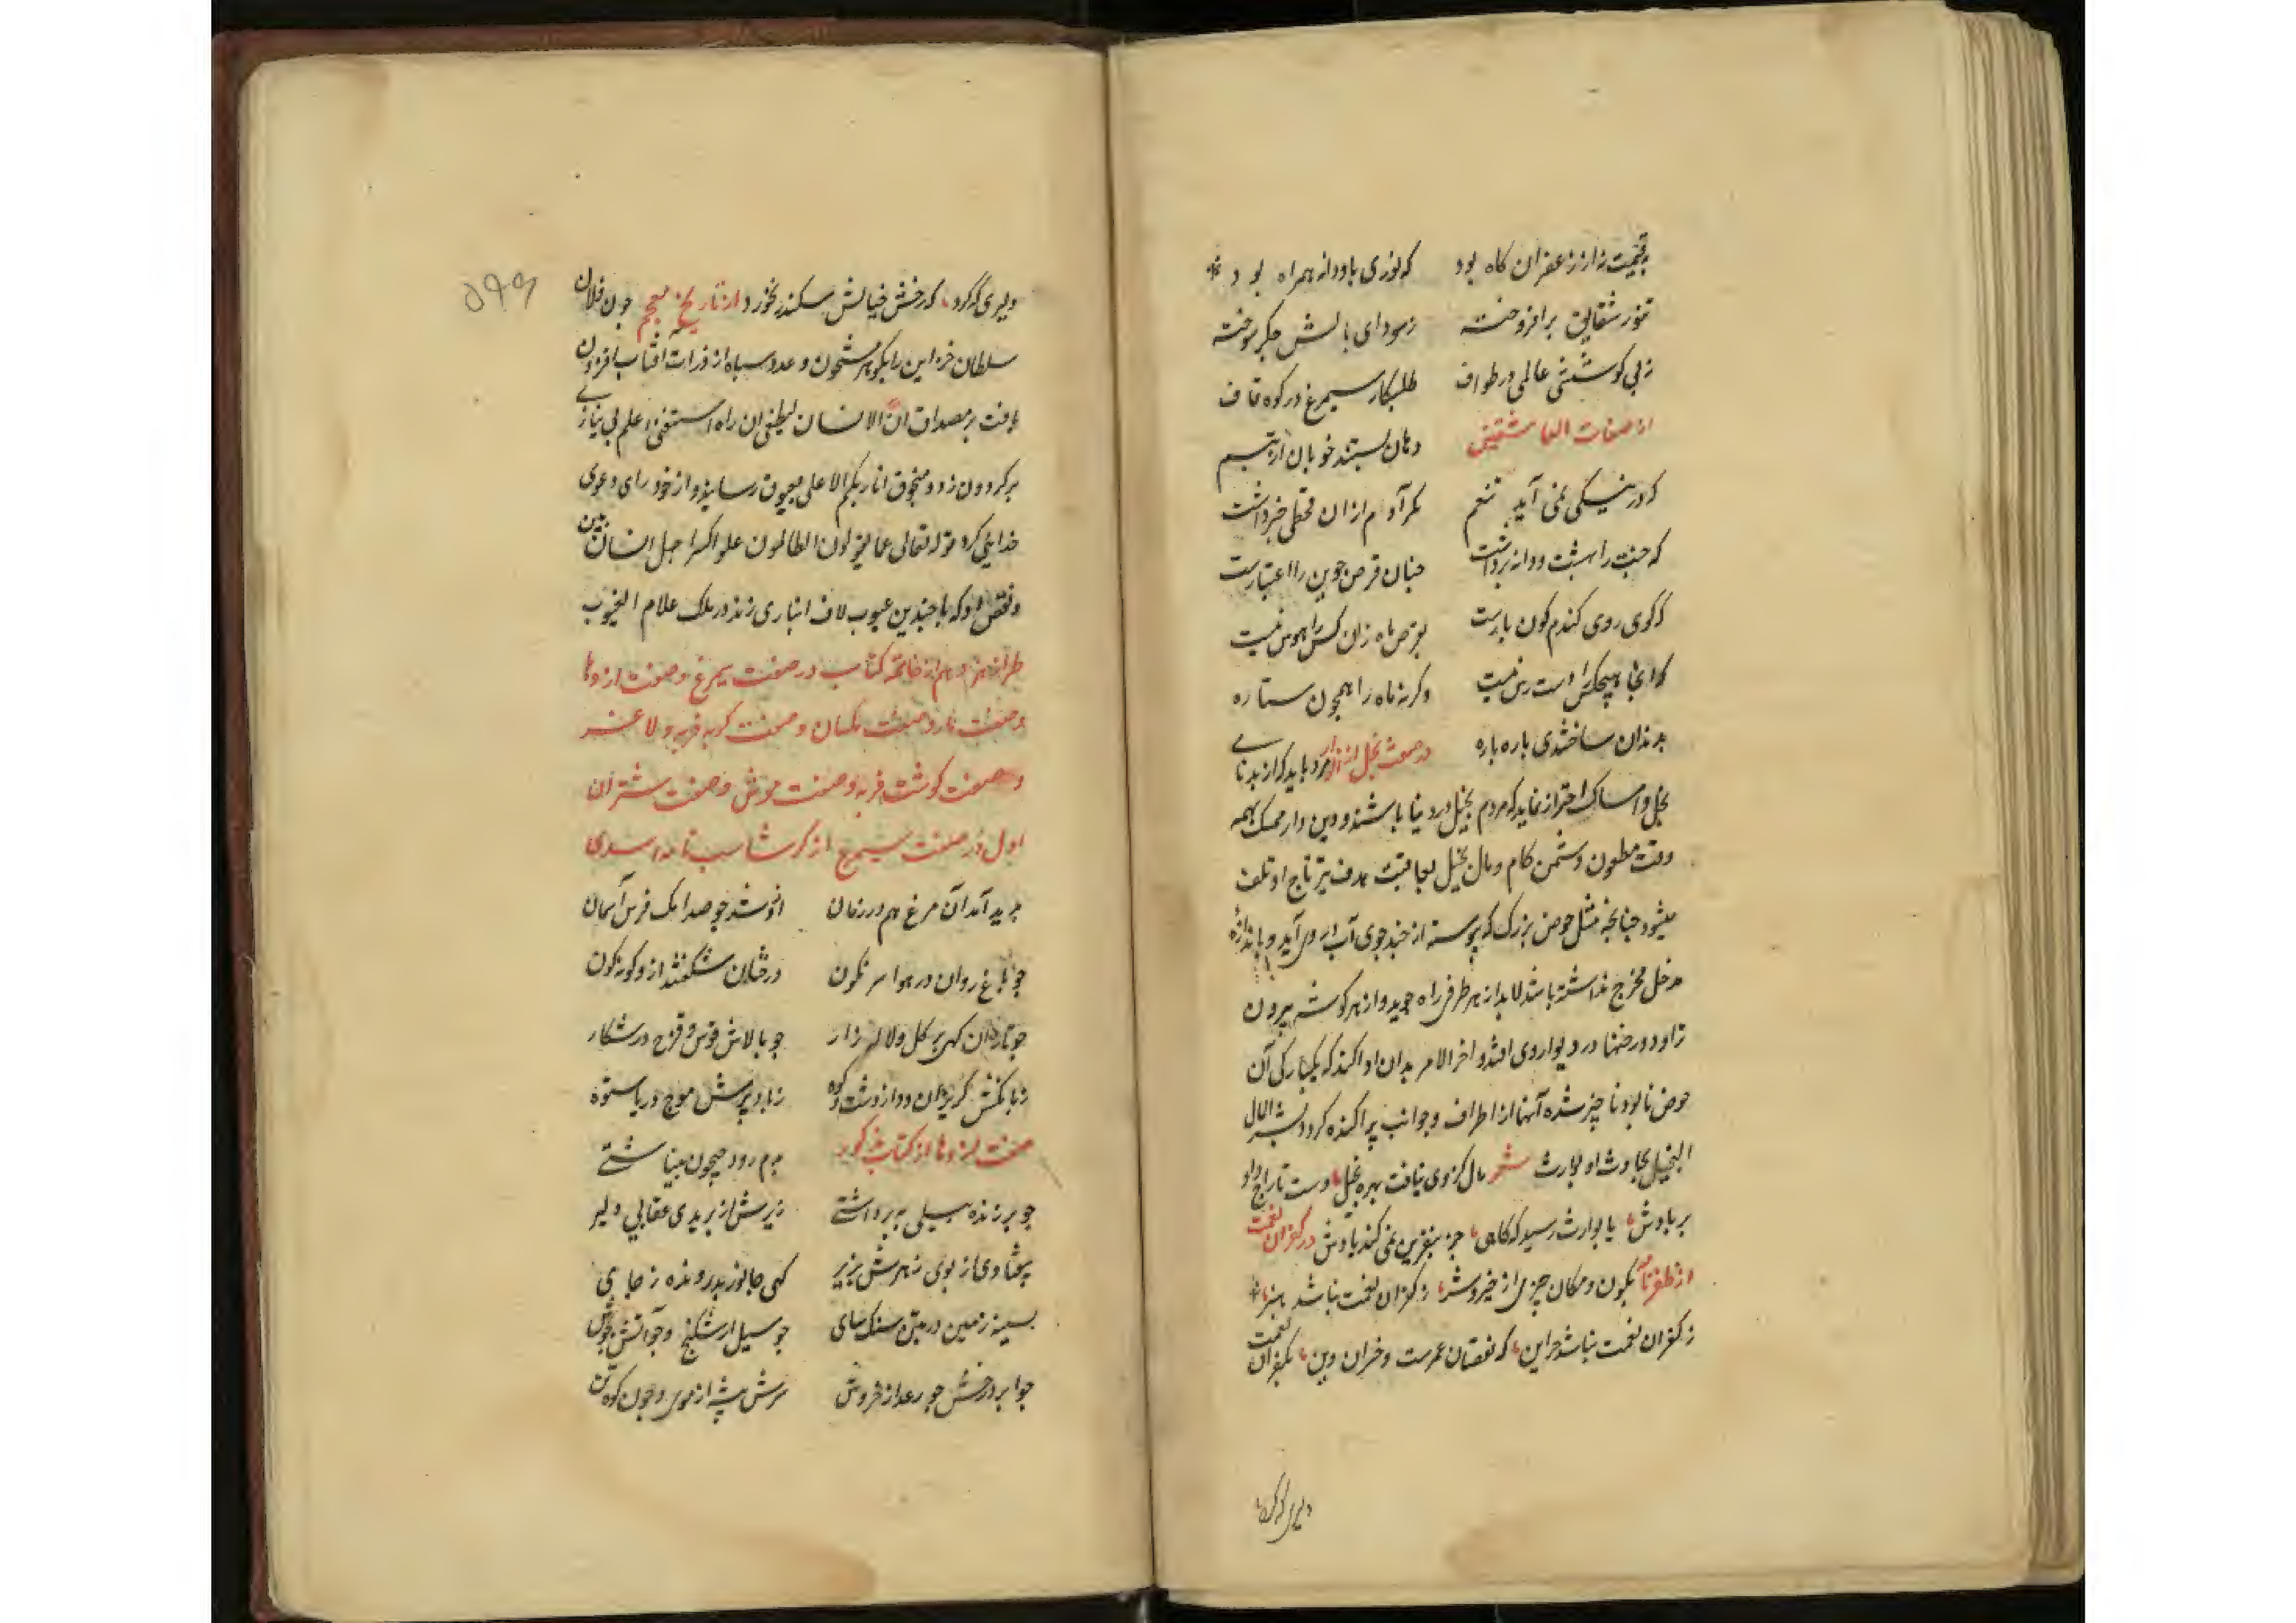 بقیمت نه ارز زعفران کاه بود که لوزی باودانه همراه بود
تنور شقایق برافروخته ز سودای بالش جگر سوخته
ز بی کوششی عالمی در طواف طلبکار سیمرغ در کوه قاف
از صفات العاشقین دهان بستند خوبان از تبسم
که در تنکی نمی آید تنعم مکر آدم از ان قحطی خبر داشت
که جنت را بهشت و دانه برداشت چنان قرص جوین را اعتبارست
که کوی روی کندم کون یارست بقرص ماه زان کس را هوس نیست
که انجا هیچکس را دست رس نیست وکرنه ماه را همچون ستاره
بدندان ساختندی باره باره در صفت بخل از مرد باید که از بدنامی
بخل و امساک احتراز نماید که مردم بخیل در دنیا باشند و دین دار ممسک همه
وقت مطعون دشمن کام و مال بخیل بعاقبت هدف تیر تاراج او تلف
میشود جنانجه مثل حوض بزرک که پیوسته از چند جوی آب در وی آید و باندازه
مدخل مخرج نداشته باشد لابد از هر طرفی راه جوید و از هر کوشه بیرون
تراود و رخنها در دیوار وی افتد و اخر الامر بدان ادا کند که بیکبارکی آن
حوض نابود و ناچیز شده آبها از اطراف و جوانب پراکنده کردد بشر المال
البخیل بحادث او لوارث شعر مال کزوی نیافت بهره بخیل دست تاراج داد
بر بادش یا بوارث رسید که کاهی جز بنفرین نمی کند یادش در کفران نعمت
از ظفرنامه بکون و مکان چیزی از خیر و شر ز کفران نعمت نباشد بتر
ز کفران نعمت نباشد جز این که نقصان عمرست و خسران دین بکفران نعمت
دلیری که کرد

۵۹۹
دلیری که کرد که رخش خیالش سکندر نخورد از تاریخ معجم چون فلان
سلطان خزاین را بکوهر مشحون و عدد سپاه از ذرات افتاب افزون
یافت بر مصداق ان الانسان لیطغی ان راه استغنی علم بی نیازی
بر کردون زد و منجوق انا ربکم الاعلی بعیوق رسانید و از خود رای دعوی
خدایی کرد قوله تعالی عما یقولون الظالمون علوا کبیرا جهل انسان بین
و نقص او که با چندین عیوب لاف انبازی زند در ملک علام الغیوب
طراز نوزدهم از خاتمه کتاب در صفت سیمرغ و صفت اژدها
و صفت مار و صفت مکسان و صفت کربه فربه و لاغر
و صفت کوشت فربه و صفت موش و صفت شتران
اول در صفت سیمرغ از کرشاسب نامه اسدی
پدید آمد آن مرغ هم در زمان ازو شد چو صد رنک فرش آسمان
چو باغ روان در هوا سرنکون درختان شکفته ازو کونه کون
چو تازان کهی پر کل و لاله زار چو بالاش قوس و قزح در شکار
ز بانکش کریزان دد از دشت و کوه ز باد پرش موج دریا ستوه
صفت اژدها از کتاب مذکور بدم رود جیحون بینباشتی
چو بر زنده پیلی بدبرداشتی ز برش ار پریدی عقابی دلیر
بیفتادی از بوی زهرش بزیر کهی جانور بد رونده ز جای
بسینه زمین در بتن سنک سای چو سیل از شکنج و چو آتش بجوش
چو ابر از درخش چو رعد از خروش سرش بیشه از موی و چون کوه تن